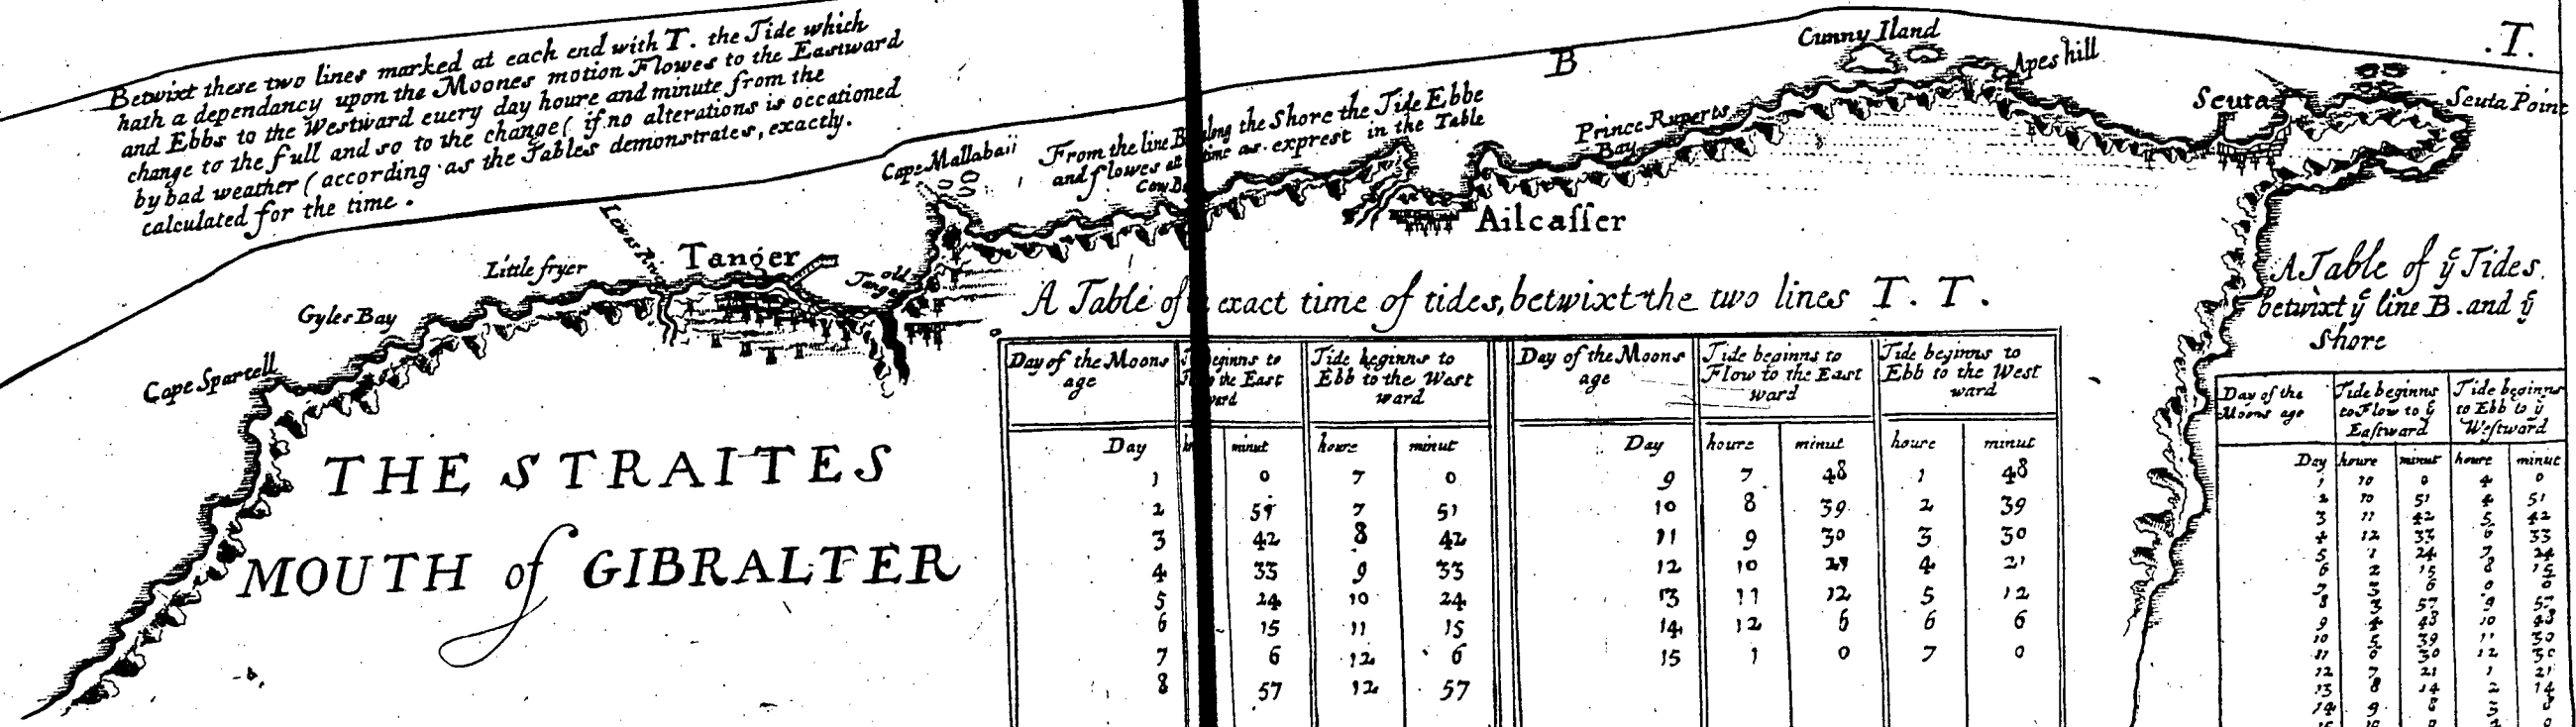 Betwixt these two lines marked at each end with T. the Tide which
hath a dependancy upon the Moones motion Flowes to the Eastward
and Ebbs to the Westward euery day houre and minute from the
change to the full and so to the change ( if no alterations is occationed
by bad weather ( according as the Tables demonstrates, exactly.
calculated for the time .
B
Cunny Iland
Apes hill
.T.
Cape Mallabaii
From the line B along the Shore the Tide Ebbe
and flowes at time as exprest in the Table
Cow B
Prince Ruperts
Bay
Seuta
Seuta Point
Ailcasser
Tanger
old
Little fryer
Gyles Bay
Cape Spartell
THE STRAITES
MOUTH of GIBRALTER
A Table of exact time of tides, betwixt the two lines T. T.
Day of the Moons age | beginns to the East ward | Tide beginns to Ebb to the West ward | Day of the Moons age | Tide beginns to Flow to the East ward | Tide beginns to Ebb to the West ward
Day | minut | houre | minut | Day | houre | minut | houre | minut
1 | 0 | 7 | 0 | 9 | 7 | 48 | 1 | 48
2 | 51 | 7 | 51 | 10 | 8 | 39 | 2 | 39
3 | 42 | 8 | 42 | 11 | 9 | 30 | 3 | 30
4 | 33 | 9 | 33 | 12 | 10 | 21 | 4 | 21
5 | 24 | 10 | 24 | 13 | 11 | 12 | 5 | 12
6 | 15 | 11 | 15 | 14 | 12 | 6 | 6 | 6
7 | 6 | 12 | 6 | 15 | 1 | 0 | 7 | 0
8 | 57 | 12 | 57
A Table of ỹ Tides,
betwixt ỹ line B. and ỹ
Shore
Day of the Moons age | Tide beginns to Flow to ỹ Eastward | Tide beginns to Ebb to ỹ Westward
Day | houre | minut | houre | minut
1 | 10 | 0 | 4 | 0
2 | 10 | 51 | 4 | 51
3 | 11 | 42 | 5 | 42
4 | 12 | 33 | 6 | 33
5 | 1 | 24 | 7 | 24
6 | 2 | 15 | 8 | 15
7 | 3 | 6
8 | 3 | 57 | 9 | 57
9 | 4 | 48 | 10 | 48
10 | 5 | 39 | 11
11 | 6 | 30 | 12 | 30
12 | 7 | 21 | 1 | 21
13 | 8 | 14 | 2 | 14
14 | 9 | 8 | 3 | 8